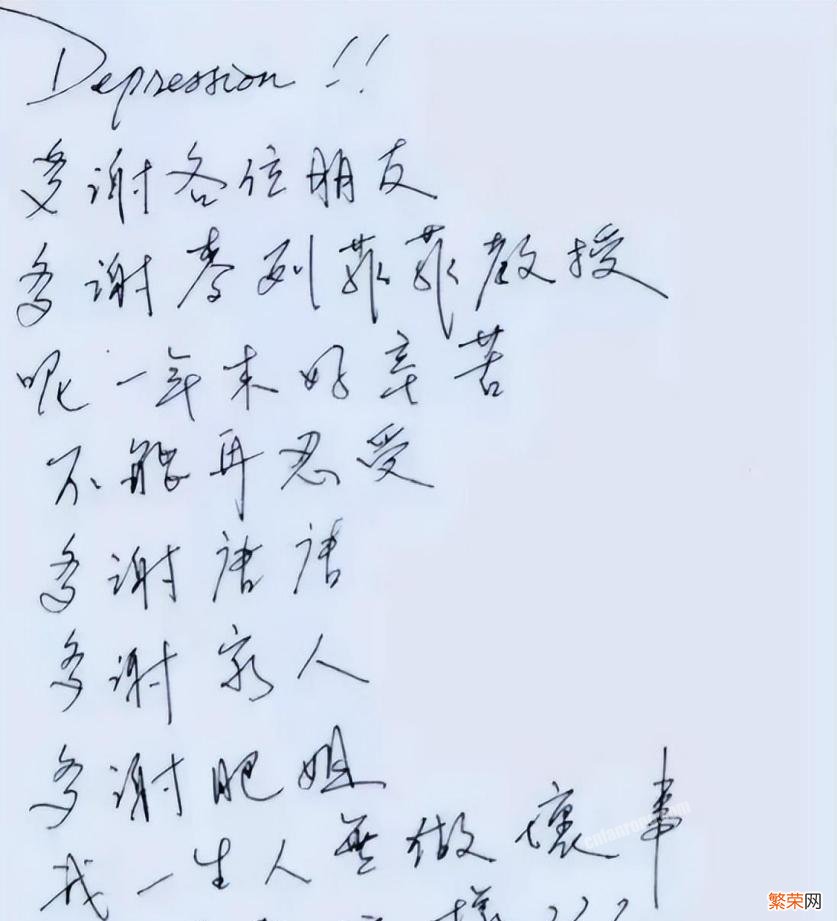 Depression !!
多謝各位朋友
多謝麥列菲菲教授
呢一年來好辛苦
不能再忍受
多謝唐唐
多謝家人
多謝肥姐
我一生人無做壞事
樣???
cnfanrong.com
繁荣网